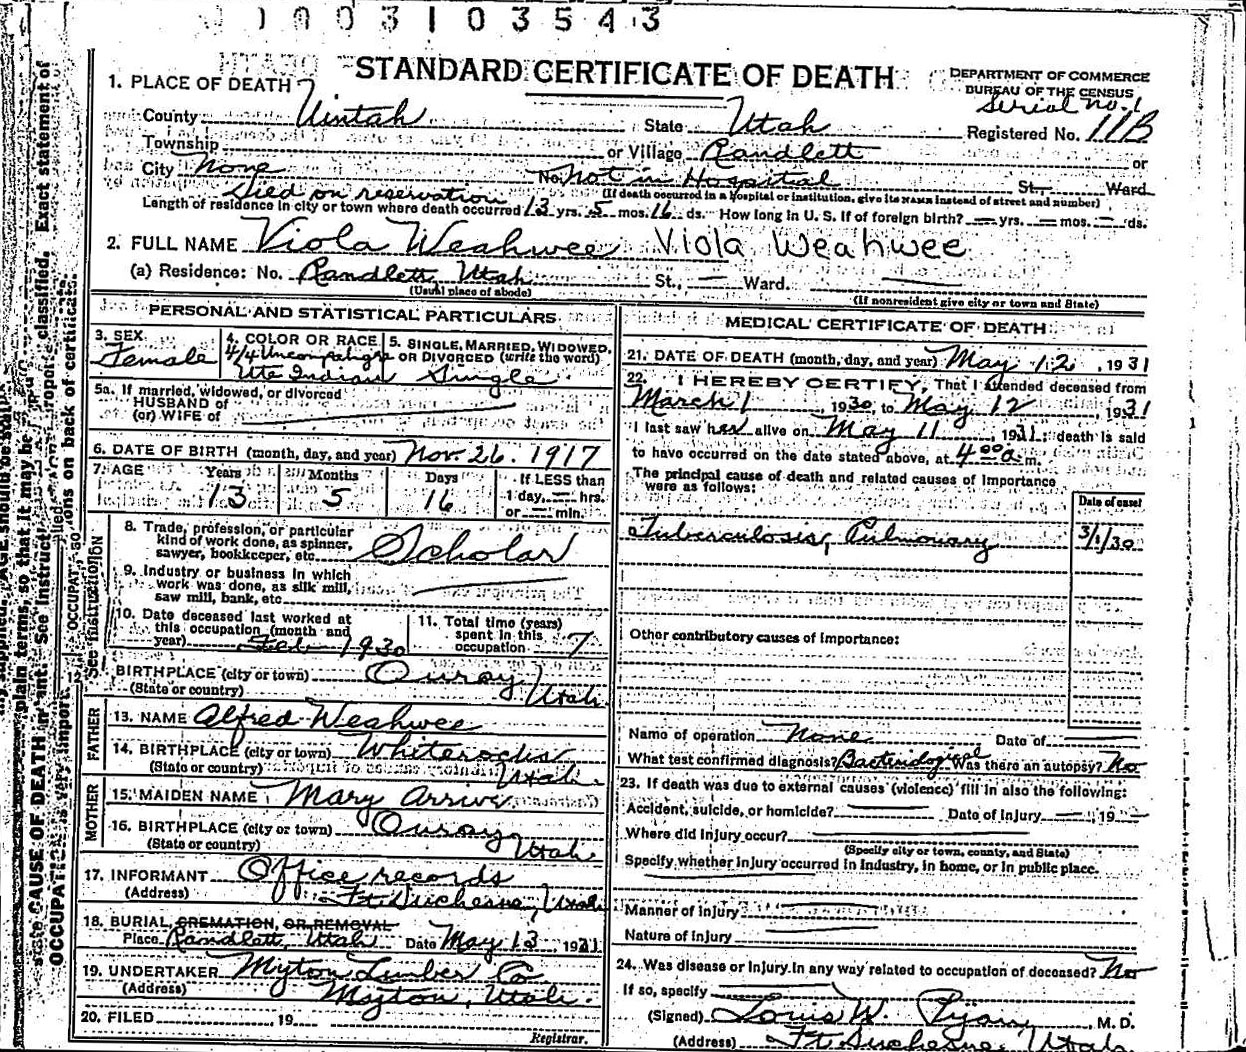 0 0 3 1 0 3 5 4 3
STANDARD CERTIFICATE OF DEATH
DEPARTMENT OF COMMERCE
BUREAU OF THE CENSUS
1. PLACE OF DEATH
Serial no. 1
County Uintah State Utah Registered No. 11B
Township or Village Randlett or
City None No. Not in Hospital St. Ward
Died on reservation (If death occurred in a hospital or institution, give its NAME instead of street and number)
Length of residence in city or town where death occurred 13 yrs. 5 mos. 16 ds. How long in U. S. if of foreign birth? — yrs. — mos. — ds.
2. FULL NAME Viola Weahwee Viola Weahwee
(a) Residence: No. Randlett, Utah St., — Ward.
(Usual place of abode) (If nonresident give city or town and State)
PERSONAL AND STATISTICAL PARTICULARS
3. SEX Female
4. COLOR OR RACE 4/4 Uncompahgre Ute Indian
5. SINGLE, MARRIED, WIDOWED, OR DIVORCED (write the word) Single
5a. If married, widowed, or divorced
HUSBAND of
(or) WIFE of
6. DATE OF BIRTH (month, day, and year) Nov. 26. 1917
7. AGE Years Months Days If LESS than
13 5 16 1 day, — hrs.
or — min.
8. Trade, profession, or particular
kind of work done, as spinner,
sawyer, bookkeeper, etc. Scholar
9. Industry or business in which
work was done, as silk mill,
saw mill, bank, etc.
10. Date deceased last worked at
this occupation (month and
year) Feb 1930
11. Total time (years)
spent in this
occupation 7
BIRTHPLACE (city or town) Ouray,
(State or country) Utah.
FATHER
13. NAME Alfred Weahwee
14. BIRTHPLACE (city or town) Whiterocks
(State or country) Utah.
MOTHER
15. MAIDEN NAME Mary Arrive
16. BIRTHPLACE (city or town) Ouray,
(State or country) Utah
17. INFORMANT Office records
(Address) Ft. Duchesne, Utah
18. BURIAL, CREMATION, OR REMOVAL
Place Randlett, Utah Date May 13 1931
19. UNDERTAKER Myton Lumber Co
(Address) Myton, Utah.
20. FILED , 19
Registrar.
MEDICAL CERTIFICATE OF DEATH
21. DATE OF DEATH (month, day, and year) May 12, 1931
22. I HEREBY CERTIFY, That I attended deceased from
March 1 1930, to May 12, 1931
I last saw her alive on May 11, 1931; death is said
to have occurred on the date stated above, at 4 00 a. m.
The principal cause of death and related causes of importance
were as follows:
Date of onset
Tuberculosis, Pulmonary 3/1/30
Other contributory causes of importance:
Name of operation None Date of
What test confirmed diagnosis? Bacteriological Was there an autopsy? No
23. If death was due to external causes (violence) fill in also the following:
Accident, suicide, or homicide? Date of injury , 19
Where did injury occur?
(Specify city or town, county, and State)
Specify whether injury occurred in industry, in home, or in public place.
Manner of injury
Nature of injury
24. Was disease or injury in any way related to occupation of deceased? No
If so, specify
(Signed) Louis W. , M. D.
(Address) Ft. Duchesne, Utah